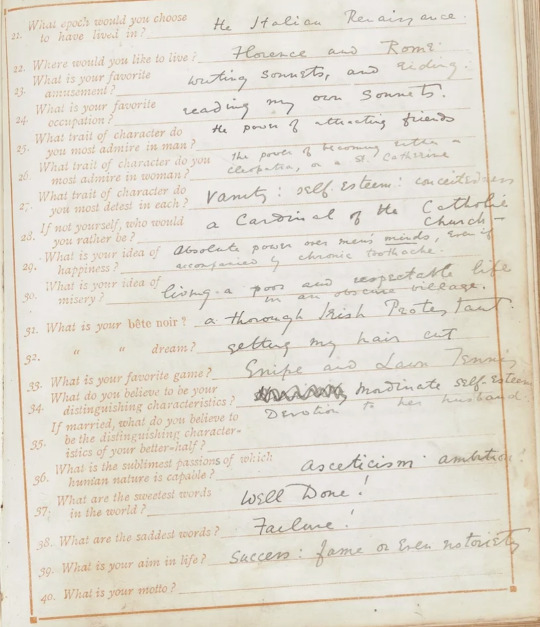 21. What epoch would you choose
to have lived in? the Italian Renaissance.
22. Where would you like to live? Florence and Rome.
23. What is your favorite
amusement? writing sonnets, and riding.
24. What is your favorite
occupation? reading my own sonnets.
25. What trait of character do
you most admire in man? the power of attracting friends
26. What trait of character do you
most admire in woman? the power of becoming either a
Cleopatra, or a St. Catherine
27. What trait of character do
you most detest in each? Vanity: self-esteem: conceitedness
28. If not yourself, who would
you rather be? a Cardinal of the Catholic
Church -
29. What is your idea of
happiness? absolute power over men's minds, even if
accompanied by chronic toothache.
30. What is your idea of
misery? living a poor and respectable life
in an obscure village.
31. What is your bête noir? a thorough Irish Protestant.
32. " " dream? getting my hair cut
33. What is your favorite game? Snipe and Lawn Tennis
34. What do you believe to be your
distinguishing characteristics? Inordinate self-esteem
35. If married, what do you believe to
be the distinguishing character-
istics of your better-half? Devotion to her husband.
36. What is the sublimest passions of which
human nature is capable? asceticism ambition!
37. What are the sweetest words
in the world? Well Done!
38. What are the saddest words? Failure!
39. What is your aim in life? Success: fame or even notoriety
40. What is your motto?